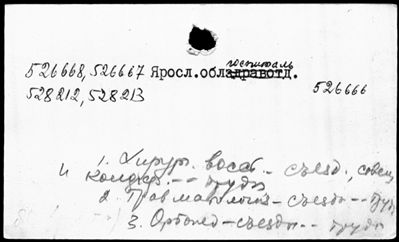 госпиталь
526668, 526667 Яросл.облздравотд.
526666
528212, 528213
1. Хирург. восст. - съезд., совещ
и конфер. -- труды
2. Травматология - съезды -- труды
3. Ортопед - съезды -- труды